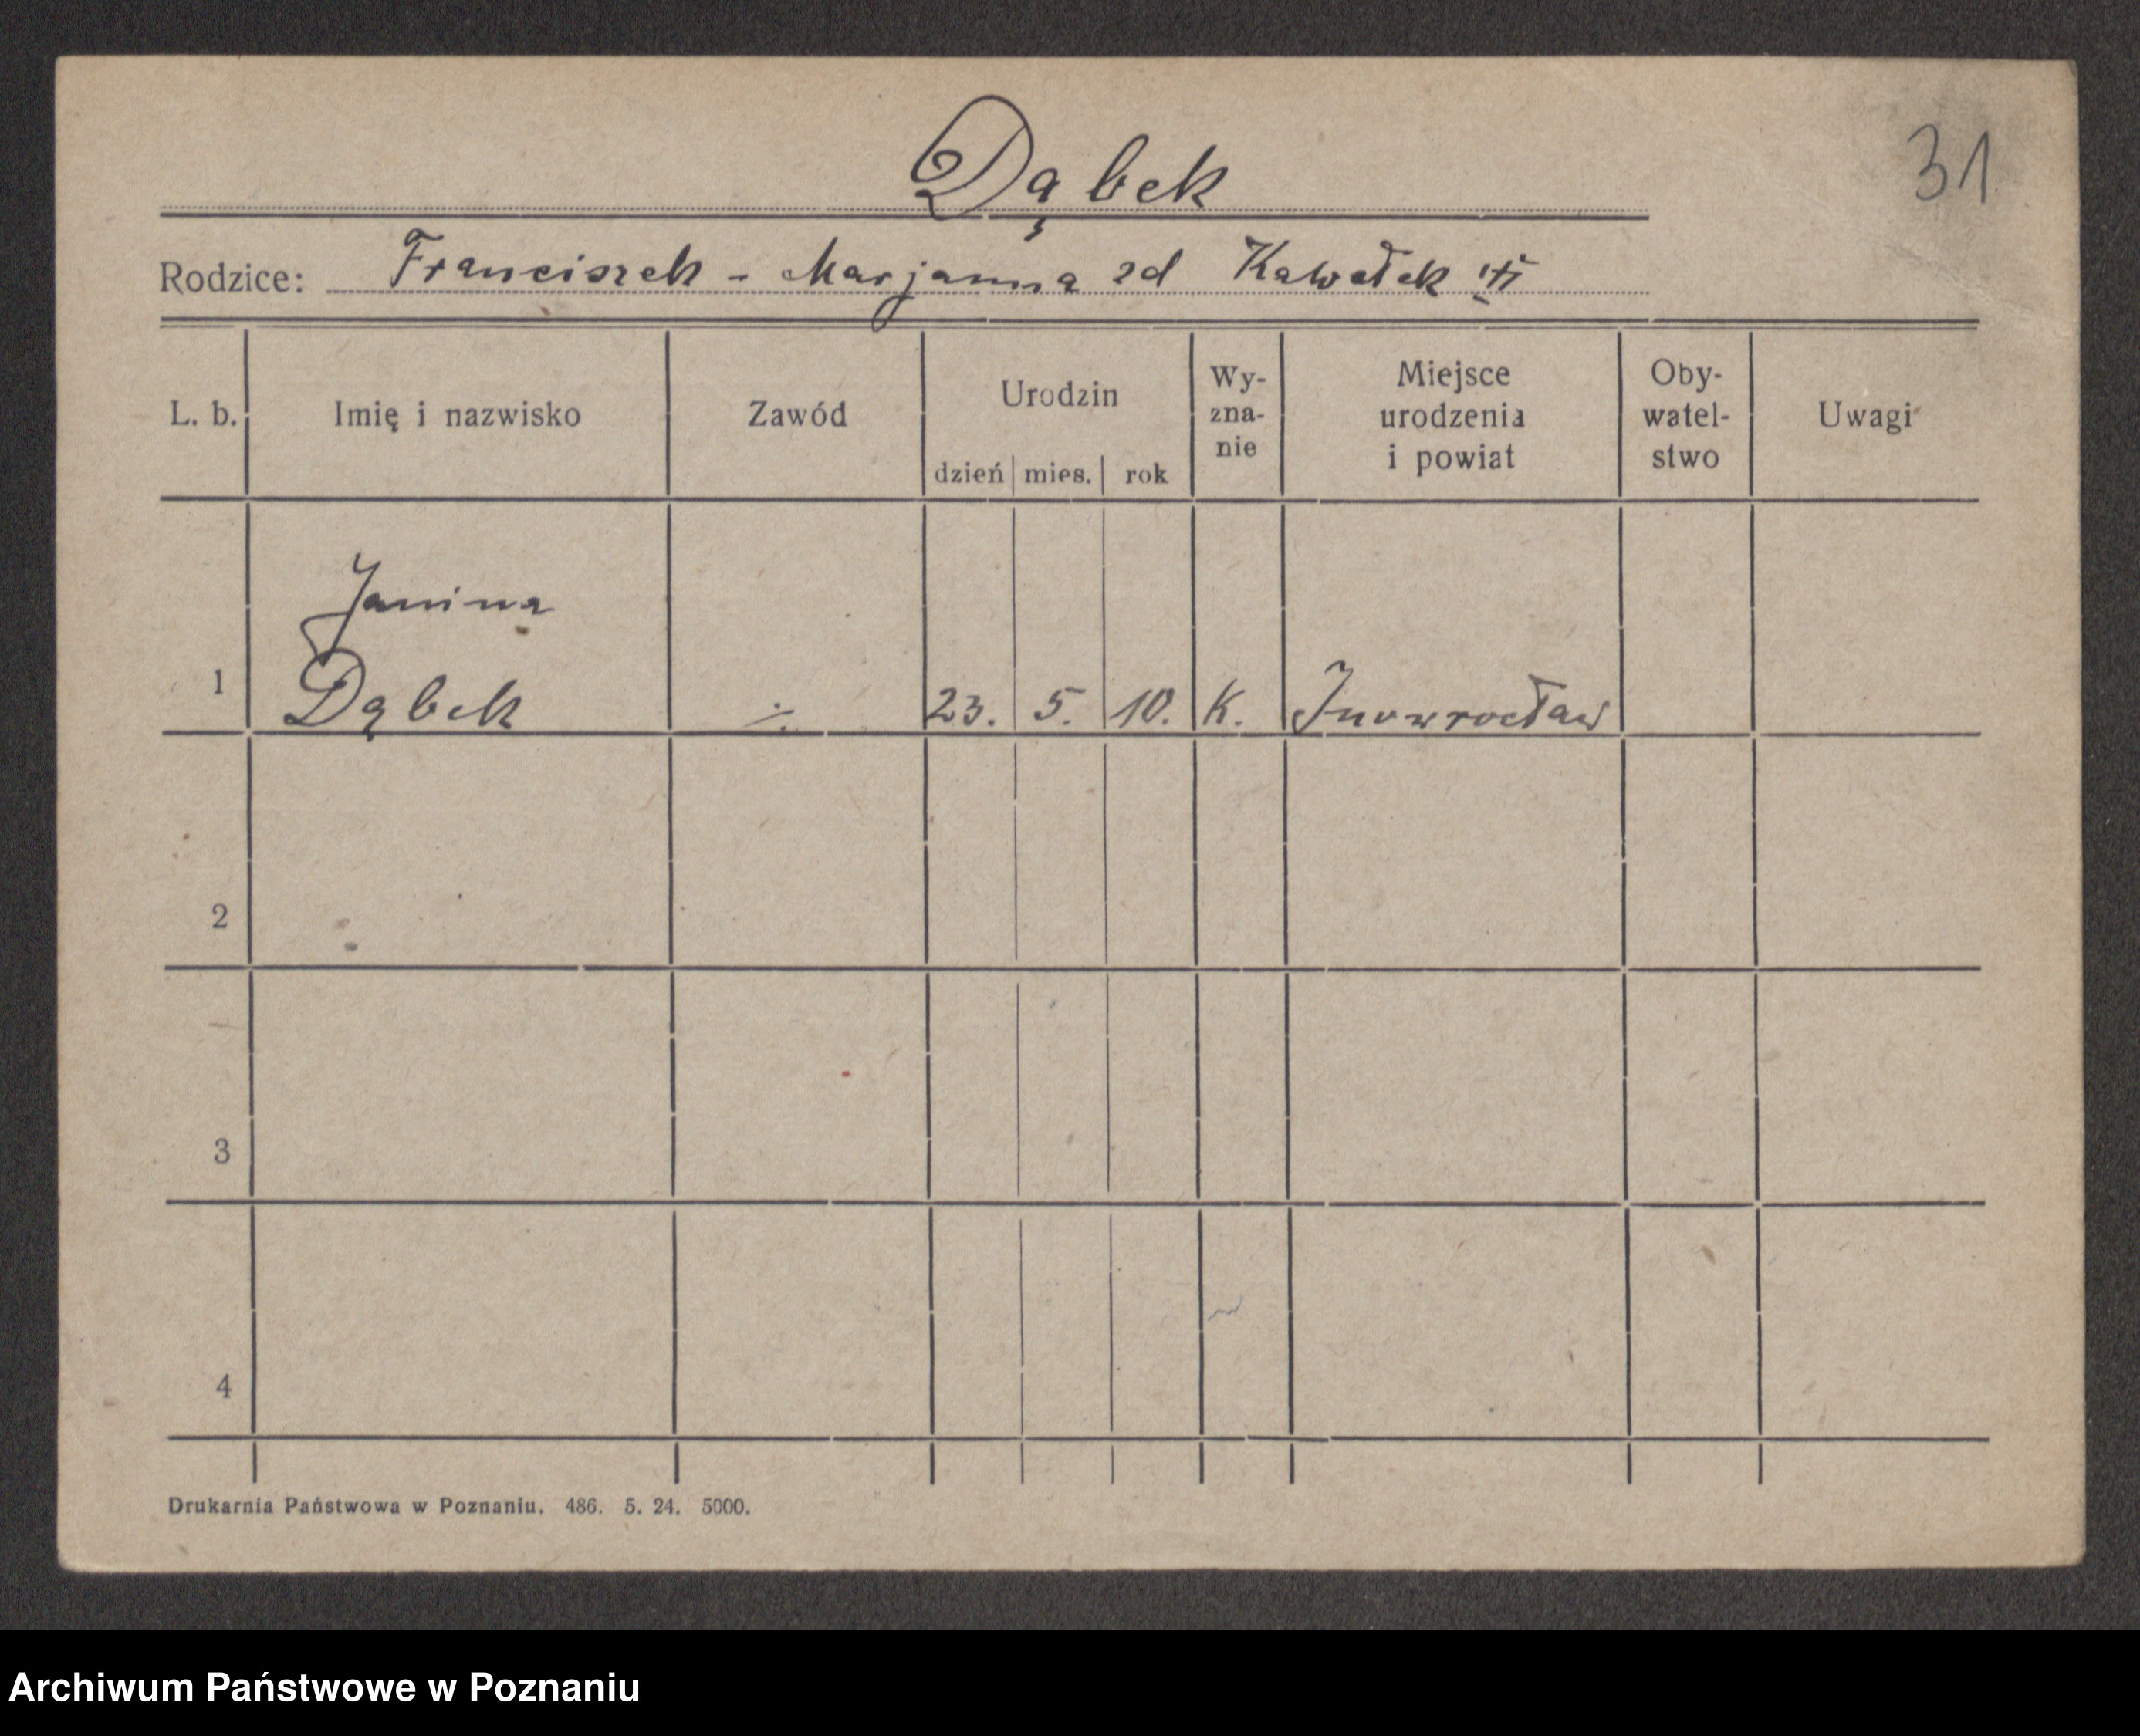 31
Dąbek
Rodzice: Franciszek - Marjanna zd Kawałek
L. b. Imię i nazwisko Zawód Urodzin dzień mies. rok Wy-zna-nie Miejsce urodzenia i powiat Oby-watel-stwo Uwagi
Janina
1 Dąbek ÷ 23. 5. 10. K. Inowrocław
2
3
4
Drukarnia Państwowa w Poznaniu. 486. 5. 24. 5000.
Archiwum Państwowe w Poznaniu